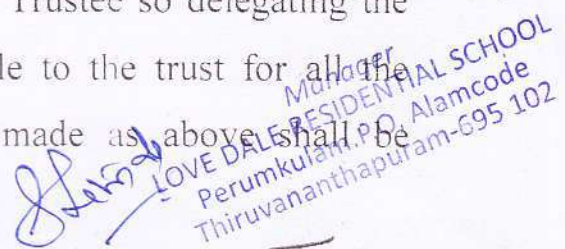 Trustee so delegating the
le to the trust for all the
made as above shall be
Manager
LOVE DALE RESIDENTIAL SCHOOL
Perumkulam.P.O. Alamcode
Thiruvananthapuram-695 102